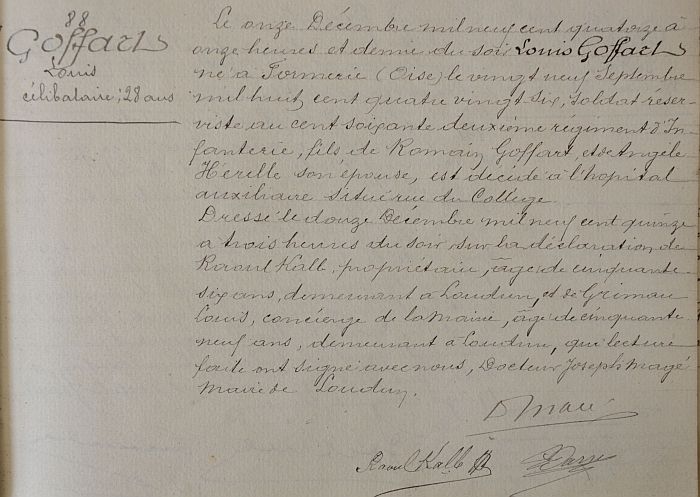 88
Goffart
Louis
célibataire, 28 ans
Le onze Décembre mil neuf cent quatorze à
onze heures et demie du soir Louis Goffart
né à Formerie (Oise) le vingt neuf Septembre
mil huit cent quatre vingt six, soldat réser-
viste au cent soixante deuxième régiment d'In-
fanterie, fils de Romain Goffart, et de Angèle
Herille son épouse, est décédé à l'hopital
auxiliaire situé rue du Collège.
Dressé le douze Décembre mil neuf cent quinze
a trois heures du soir, sur la déclaration de
Raoul Kalb, propriétaire, âgé de cinquante
six ans, demeurant à Loudun, et de Grimau
Louis, concierge de la Mairie, âgé de cinquante
neuf ans, demeurant à Loudun, qui lecture
faite ont signé avec nous, Docteur Joseph Magé
Maire de Loudun.
Raoul Kalb